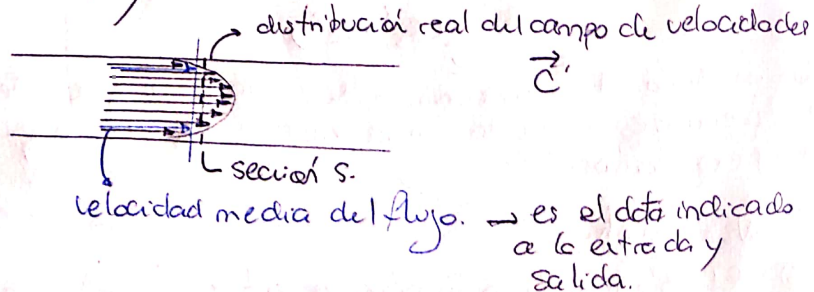 distribución real del campo de velocidades
C'
sección S.
velocidad media del flujo. → es el dato indicado
a la entrada y
salida.